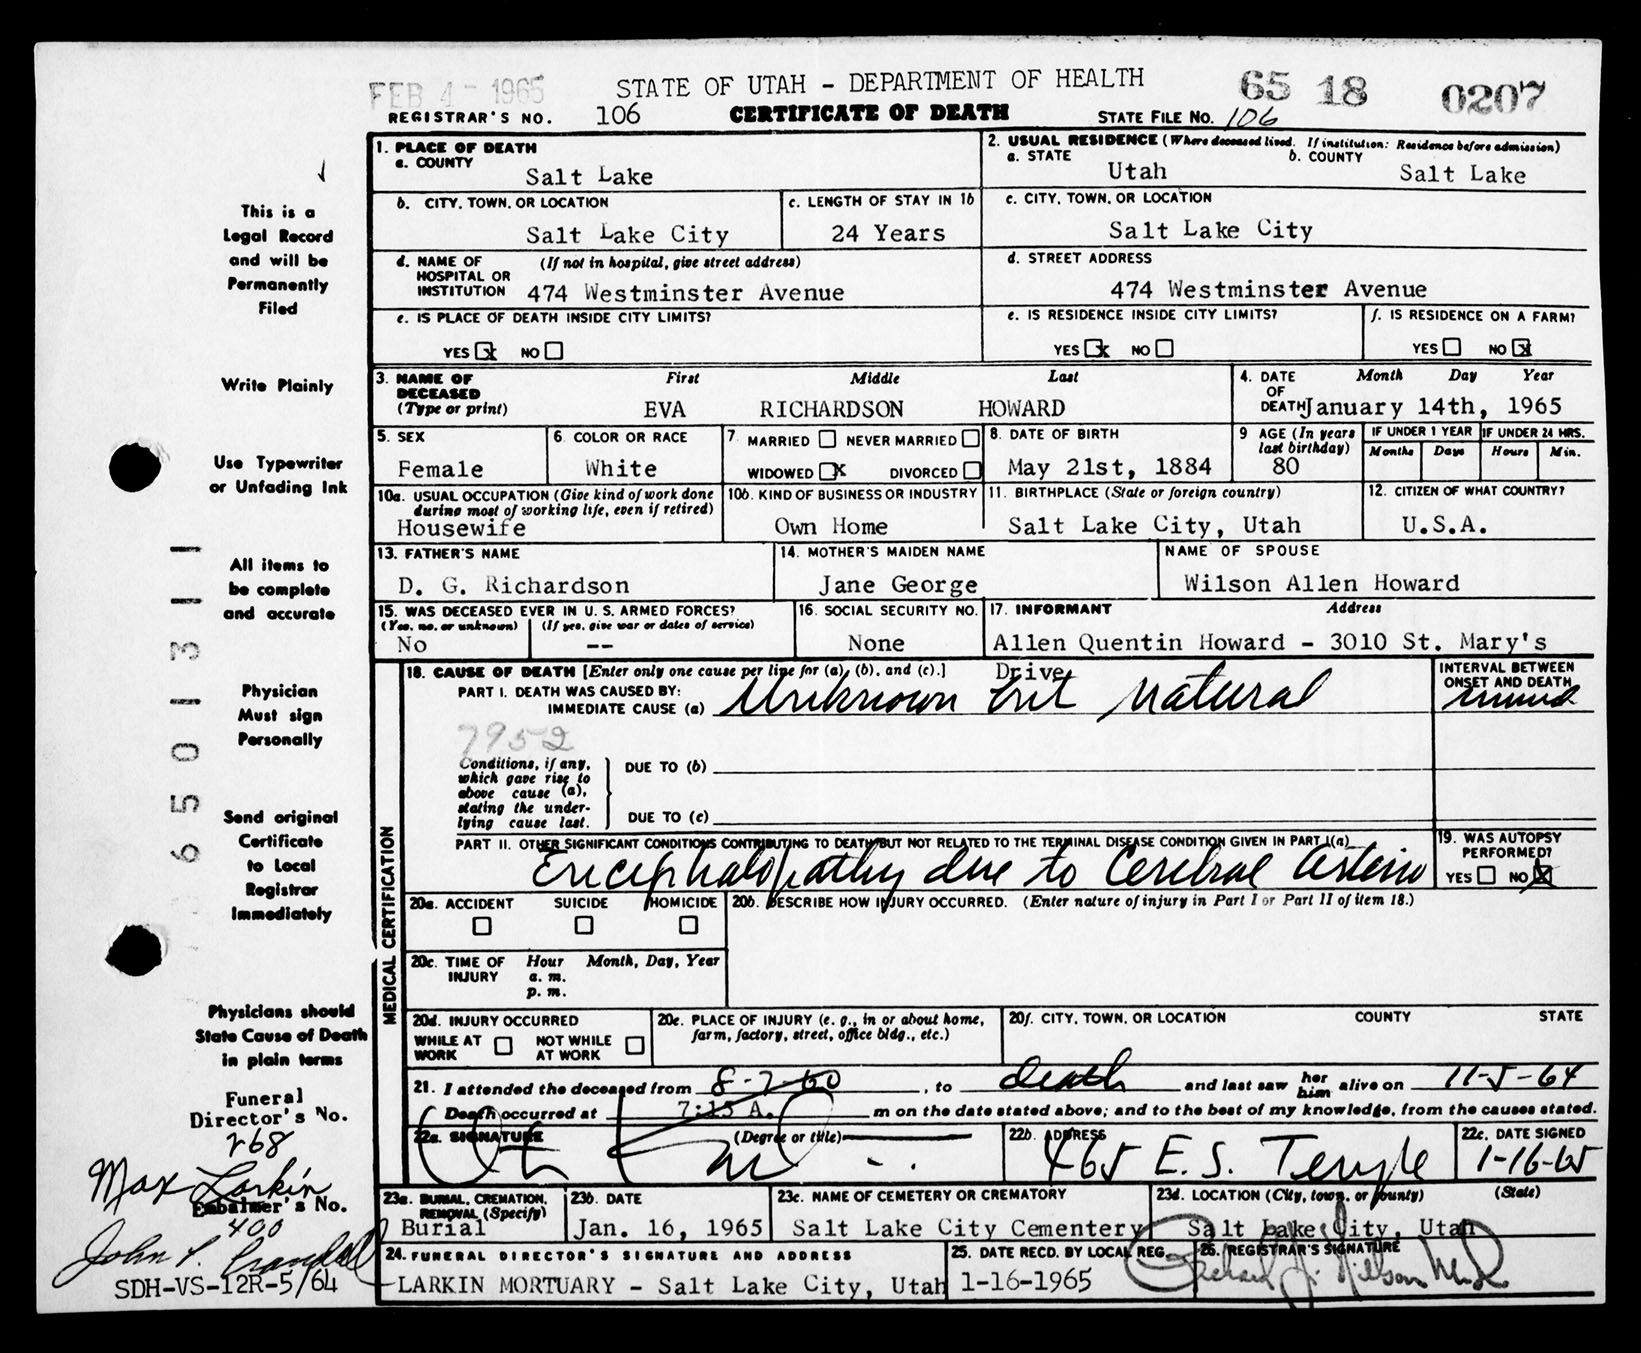 FEB 4 - 1965 STATE OF UTAH – DEPARTMENT OF HEALTH 65 18 0207
REGISTRAR'S NO. 106 CERTIFICATE OF DEATH STATE FILE NO. 106
This is a
Legal Record
and will be
Permanently
Filed
Write Plainly
Use Typewriter
or Unfading Ink
All items to
be complete
and accurate
Physician
Must sign
Personally
Send original
Certificate
to Local
Registrar
Immediately
Physicians should
State Cause of Death
in plain terms
Funeral
Director's No.
268
Max Larkin
Embalmer's No.
400
John P. Crandall
SDH-VS-12R-5/64
65013111
1. PLACE OF DEATH
a. COUNTY
Salt Lake
2. USUAL RESIDENCE (Where deceased lived. If institution: Residence before admission)
a. STATE b. COUNTY
Utah Salt Lake
b. CITY, TOWN, OR LOCATION
Salt Lake City
c. LENGTH OF STAY IN 1b
24 Years
c. CITY, TOWN, OR LOCATION
Salt Lake City
d. NAME OF (If not in hospital, give street address)
HOSPITAL OR
INSTITUTION 474 Westminster Avenue
d. STREET ADDRESS
474 Westminster Avenue
e. IS PLACE OF DEATH INSIDE CITY LIMITS?
YES x NO
e. IS RESIDENCE INSIDE CITY LIMITS?
YES x NO
f. IS RESIDENCE ON A FARM?
YES NO x
3. NAME OF First Middle Last
DECEASED
(Type or print) EVA RICHARDSON HOWARD
4. DATE Month Day Year
OF
DEATH January 14th, 1965
5. SEX
Female
6. COLOR OR RACE
White
7. MARRIED NEVER MARRIED
WIDOWED x DIVORCED
8. DATE OF BIRTH
May 21st, 1884
9 AGE (In years
last birthday)
80
IF UNDER 1 YEAR
Months Days
IF UNDER 24 HRS.
Hours Min.
10a. USUAL OCCUPATION (Give kind of work done
during most of working life, even if retired)
Housewife
10b. KIND OF BUSINESS OR INDUSTRY
Own Home
11. BIRTHPLACE (State or foreign country)
Salt Lake City, Utah
12. CITIZEN OF WHAT COUNTRY?
U.S.A.
13. FATHER'S NAME
D. G. Richardson
14. MOTHER'S MAIDEN NAME
Jane George
NAME OF SPOUSE
Wilson Allen Howard
15. WAS DECEASED EVER IN U. S. ARMED FORCES?
(Yes, no, or unknown) (If yes, give war or dates of service)
No --
16. SOCIAL SECURITY NO.
None
17. INFORMANT Address
Allen Quentin Howard – 3010 St. Mary's
Drive
MEDICAL CERTIFICATION
18. CAUSE OF DEATH [Enter only one cause per line for (a), (b), and (c).]
PART I. DEATH WAS CAUSED BY:
IMMEDIATE CAUSE (a) Unknown but natural
INTERVAL BETWEEN
ONSET AND DEATH
7952
Conditions, if any,
which gave rise to
above cause (a),
stating the under-
lying cause last.
DUE TO (b)
DUE TO (c)
PART II. OTHER SIGNIFICANT CONDITIONS CONTRIBUTING TO DEATH BUT NOT RELATED TO THE TERMINAL DISEASE CONDITION GIVEN IN PART I(a)
Encephalopathy due to Cerebral Arterio
19. WAS AUTOPSY
PERFORMED?
YES NO x
20a. ACCIDENT SUICIDE HOMICIDE
20b. DESCRIBE HOW INJURY OCCURRED. (Enter nature of injury in Part I or Part II of item 18.)
20c. TIME OF Hour Month, Day, Year
INJURY a. m.
p. m.
20d. INJURY OCCURRED
WHILE AT NOT WHILE
WORK AT WORK
20e. PLACE OF INJURY (e. g., in or about home,
farm, factory, street, office bldg., etc.)
20f. CITY, TOWN, OR LOCATION COUNTY STATE
21. I attended the deceased from 8-7-60, to death and last saw her him alive on 11-5-64
Death occurred at 7:15 A. m on the date stated above; and to the best of my knowledge, from the causes stated.
22a. SIGNATURE (Degree or title)
22b. ADDRESS
465 E. S. Temple
22c. DATE SIGNED
1-16-65
23a. BURIAL, CREMATION,
REMOVAL (Specify)
Burial
23b. DATE
Jan. 16, 1965
23c. NAME OF CEMETERY OR CREMATORY
Salt Lake City Cementery
23d. LOCATION (City, town, or county) (State)
Salt Lake City, Utah
24. FUNERAL DIRECTOR'S SIGNATURE AND ADDRESS
LARKIN MORTUARY – Salt Lake City, Utah
25. DATE RECD. BY LOCAL REG.
1-16-1965
26. REGISTRAR'S SIGNATURE